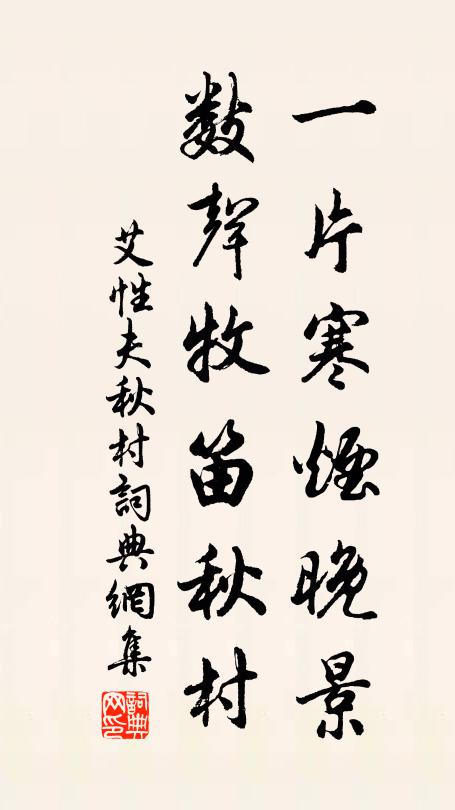 一片寒煙晚景
數聲牧笛秋村
艾性夫秋村詞典網集
詞典网印